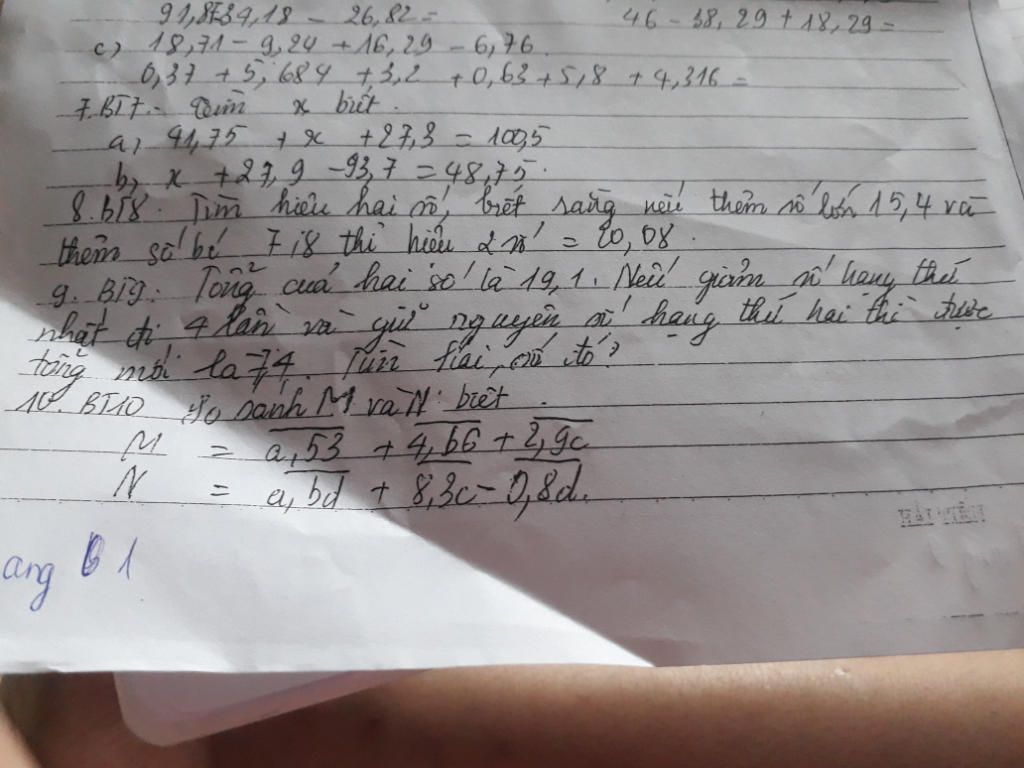 91,8 - 34,18 - 26,82 =
46 - 38,29 + 18,29 =
c, 18,71 - 9,24 + 16,29 - 6,76
0,37 + 5,684 + 3,2 + 0,63 + 5,8 + 4,316 =
7. BT7. Tìm x biết.
a, 41,75 + x + 27,3 = 100,5
b, x + 27,9 - 93,7 = 48,75.
8. BT8. Tìm hiệu hai số, biết rằng nếu thêm số lớn 15,4 và
thêm số bé 7,8 thì hiệu 2 số = 20,08.
9. BT9: Tổng của hai số là 19,1. Nếu giảm số hạng thứ
nhất đi 4 lần và giữ nguyên số hạng thứ hai thì được
tổng mới là 7,4. Tìm hai số đó?
10. BT10 So sánh M và N biết.
M = a,53 + 4,b6 + 2,9c
N = a,bd + 8,3c - 0,8d.
HẢI TIẾN
ang 1